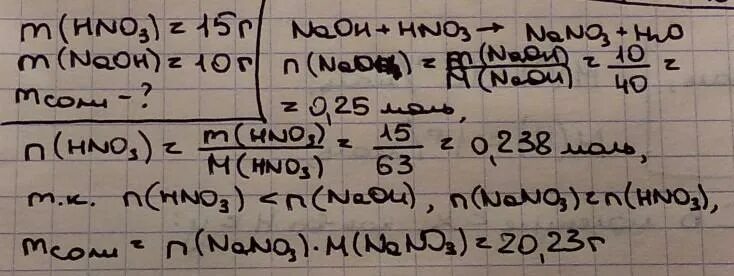 m(HNO₃) = 15г
m(NaOH) = 10г
mсоли - ?
NaOH + HNO₃ → NaNO₃ + H₂O
n(NaOH) = m(NaOH)/M(NaOH) = 10/40 =
= 0,25 моль,
n(HNO₃) = m(HNO₃)/M(HNO₃) = 15/63 = 0,238 моль,
т.к. n(HNO₃) < n(NaOH), n(NaNO₃) = n(HNO₃),
mсоли = n(NaNO₃)·M(NaNO₃) = 20,23г